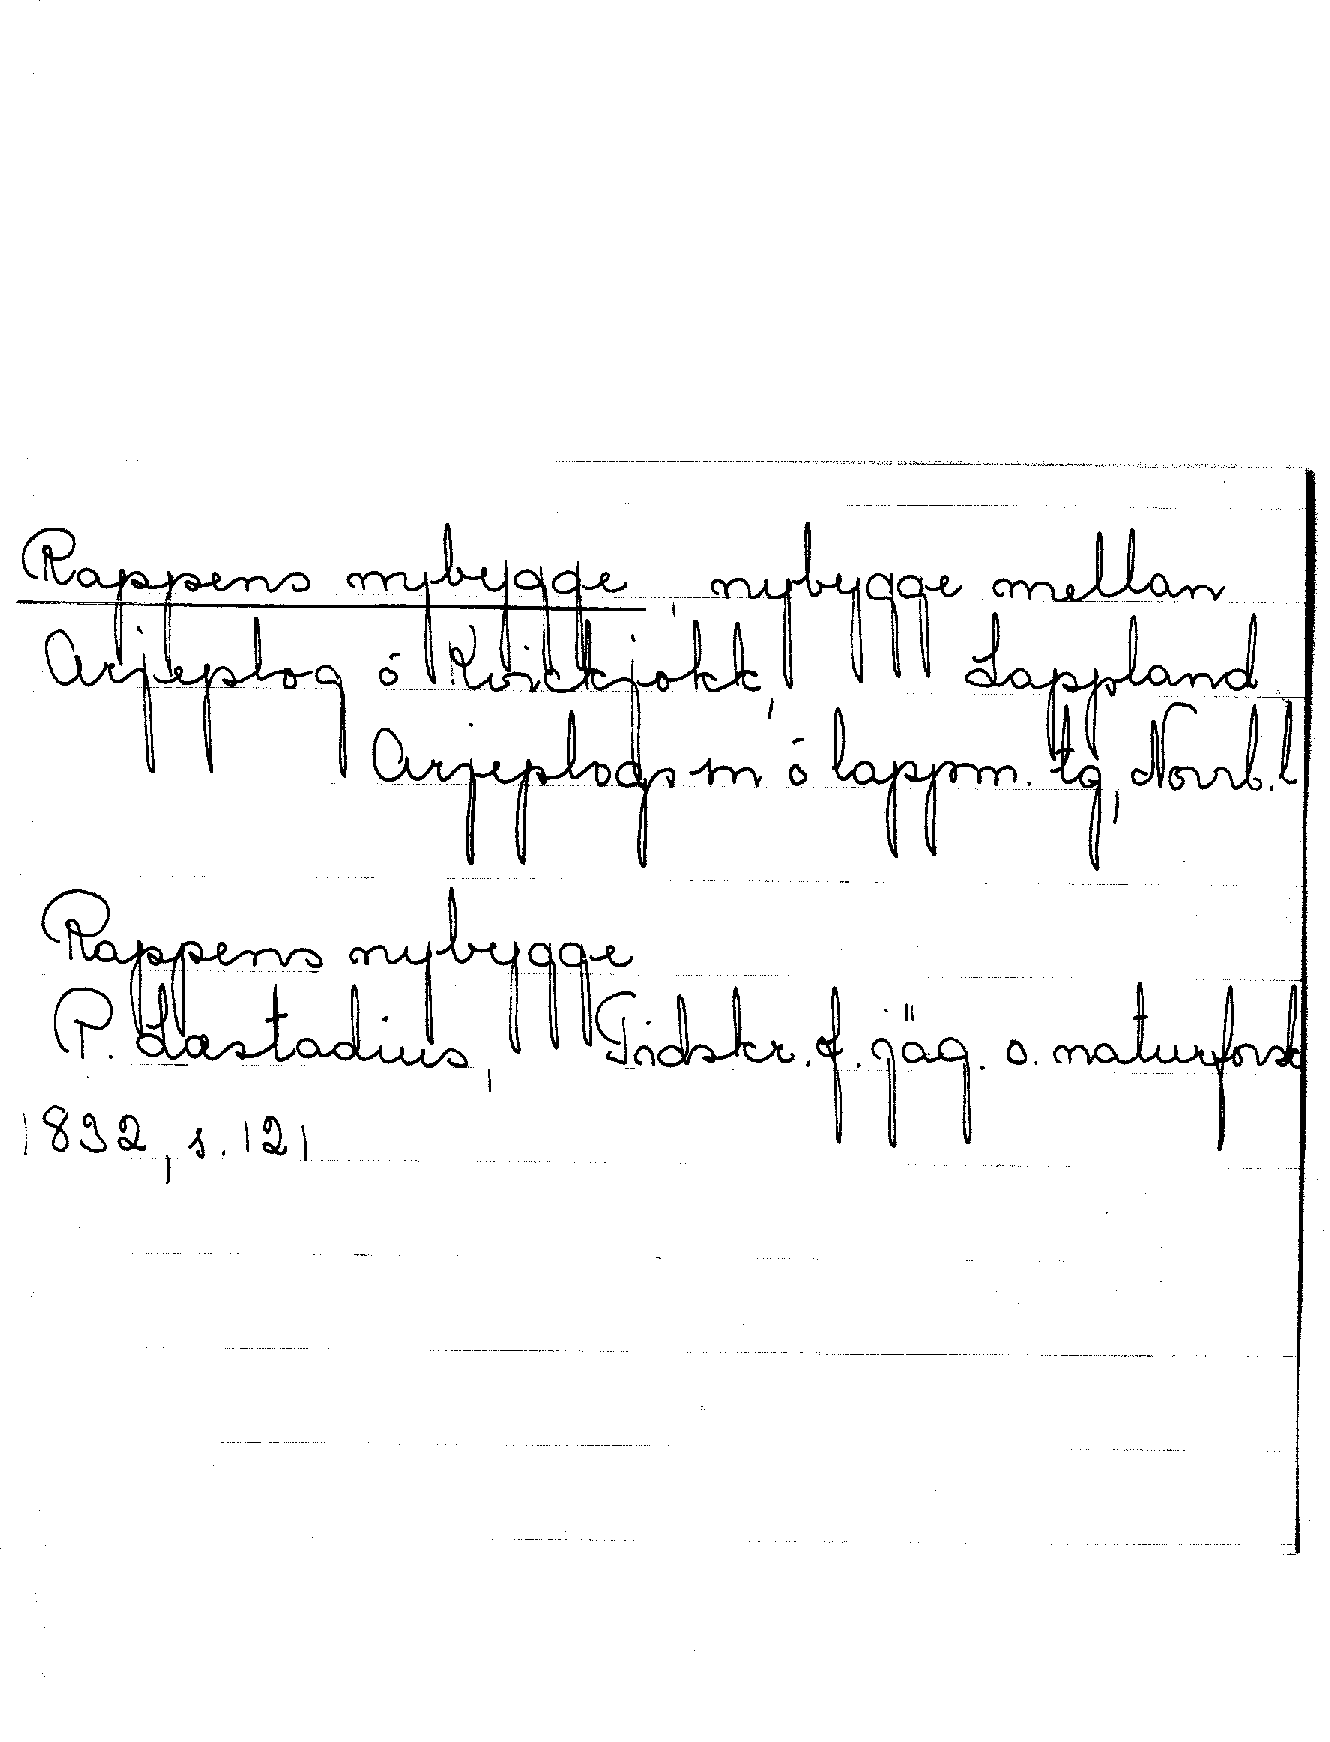 Rappens nybygge, nybygge mellan
Arjeplog ó Kvickjokk, Lappland
Arjeplogs sn ó lappm. tg, Norrb. l
Rappens nybygge
P. Læstadius, Tidskr. f. jäg. o. naturforsk
1832, s. 121